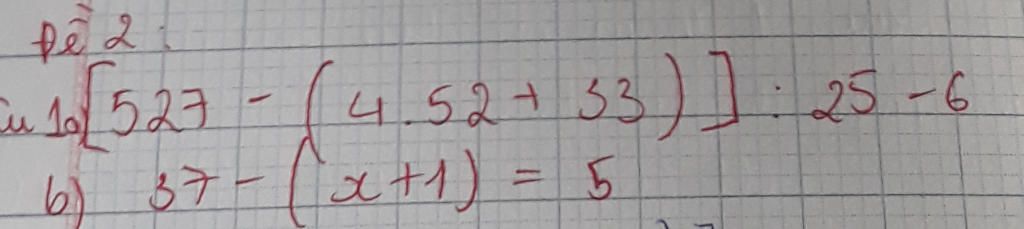 Đề 2:
u 1a [527 - (4.52 + 33)] : 25 - 6
b) 37 - (x+1) = 5